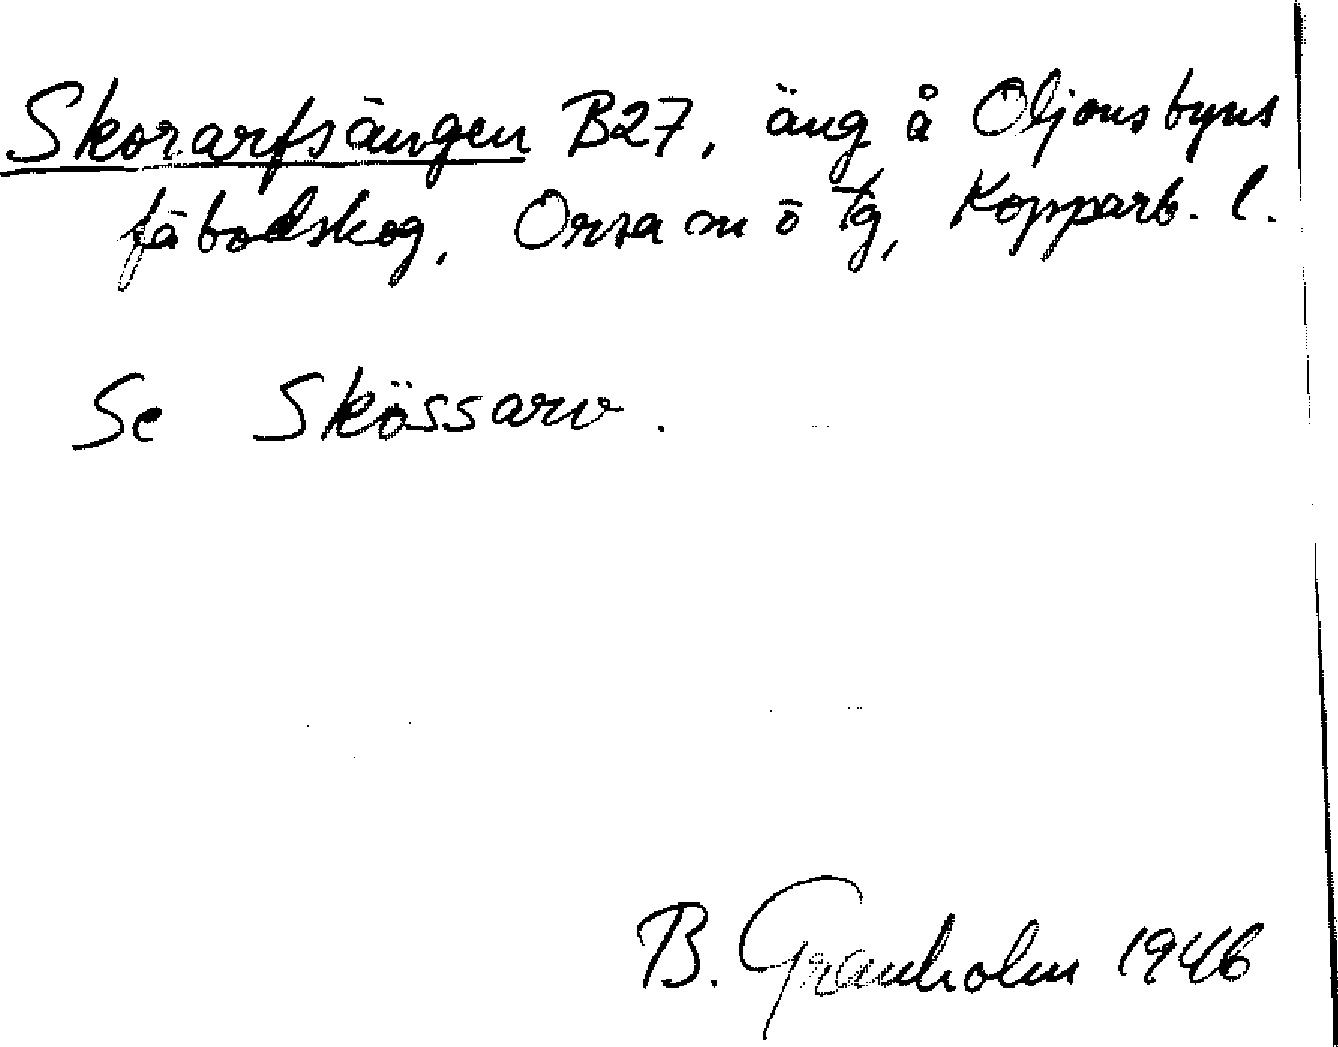 Skorarfsängen B27, äng å Oljonsbyns
fäbodskog, Orsa sn ö tg, Kopparb. l.
Se Skössarv.
B. Granholm 1946